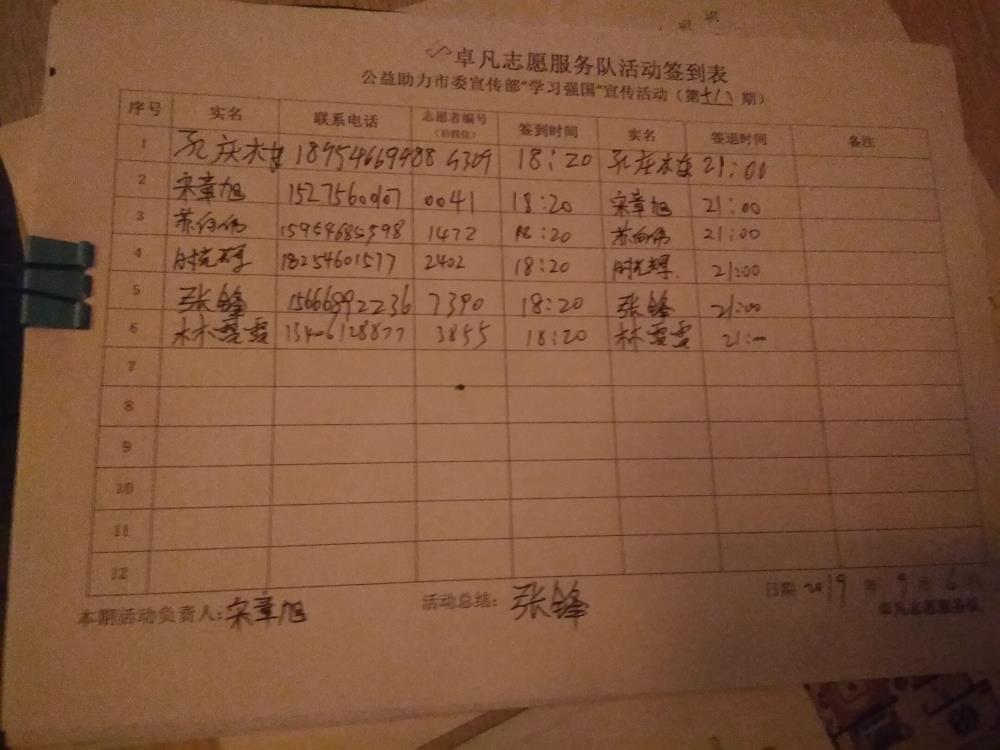 卓凡志愿服务队活动签到表
公益助力市委宣传部"学习强国"宣传活动（第十八期）
序号 实名 联系电话 志愿者编号（后四位） 签到时间 实名 签退时间 备注
1 孔庆木 18954669988 4309 18:20 孔庆木 21:00
2 宋章旭 0041 18:20 宋章旭 21:00
3 苏向伟 15954685598 1472 18:20 苏向伟 21:00
4 时光辉 18254601577 2402 18:20 时光辉 21:00
5 张锋 15666892236 7390 18:20 张锋 21:00
6 林雪雪 13406128877 3855 18:20 林雪雪 21:
7
8
9
10
11
12
本期活动负责人：宋章旭 活动总结：张锋 日期 2019 年 9 月 6
卓凡志愿服务队